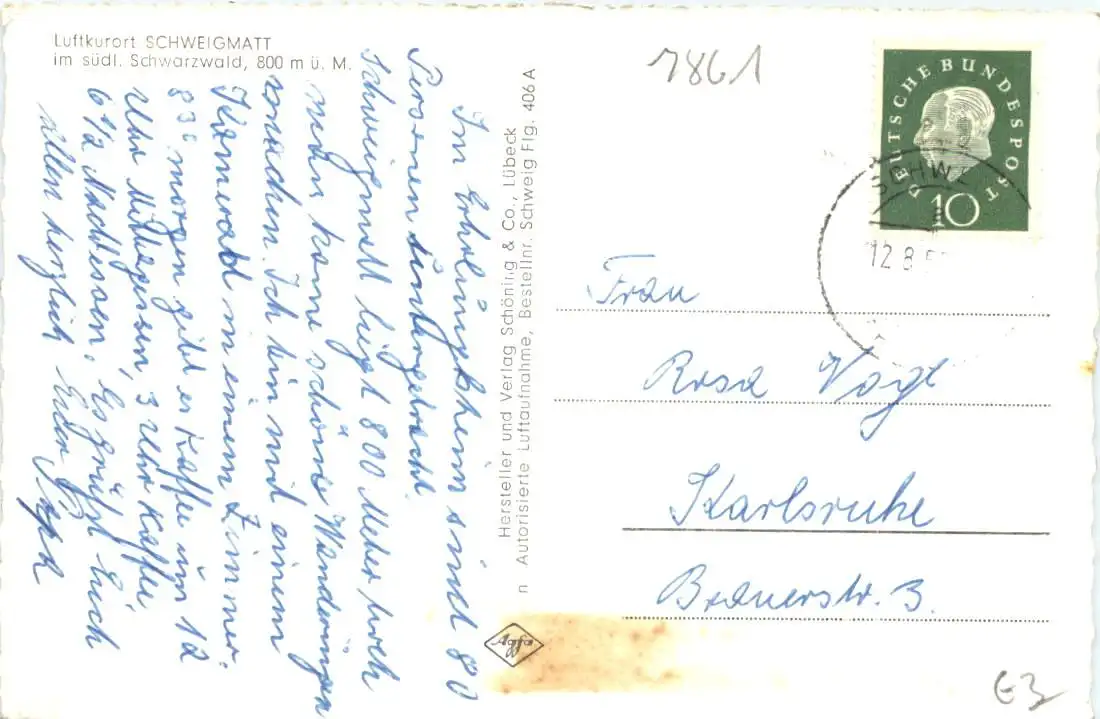 Luftkurort SCHWEIGMATT
im südl. Schwarzwald, 800 m ü. M.
Im Erholungsheim sind 80
Personen untergebracht.
Schweigmatt liegt 800 Meter hoch
man kann schöne Wanderungen
machen. Ich bin mit einem
Kamerad in einem Zimmer.
8 30 morgen gibt es Kaffee um 12
Uhr Mittagessen, 3 Uhr Kaffee
6 1/2 Nachtessen. Es grüßt Euch
allen herzlich Euer
Hersteller und Verlag Schöning & Co., Lübeck
n Autorisierte Luftaufnahme, Bestellnr. Schweig Flg. 406 A
Agfa
7861
DEUTSCHE BUNDESPOST
10
SCHWE
12 8 5
Frau
Rosa Vogt
Karlsruhe
Brauerstr. 3.
€3